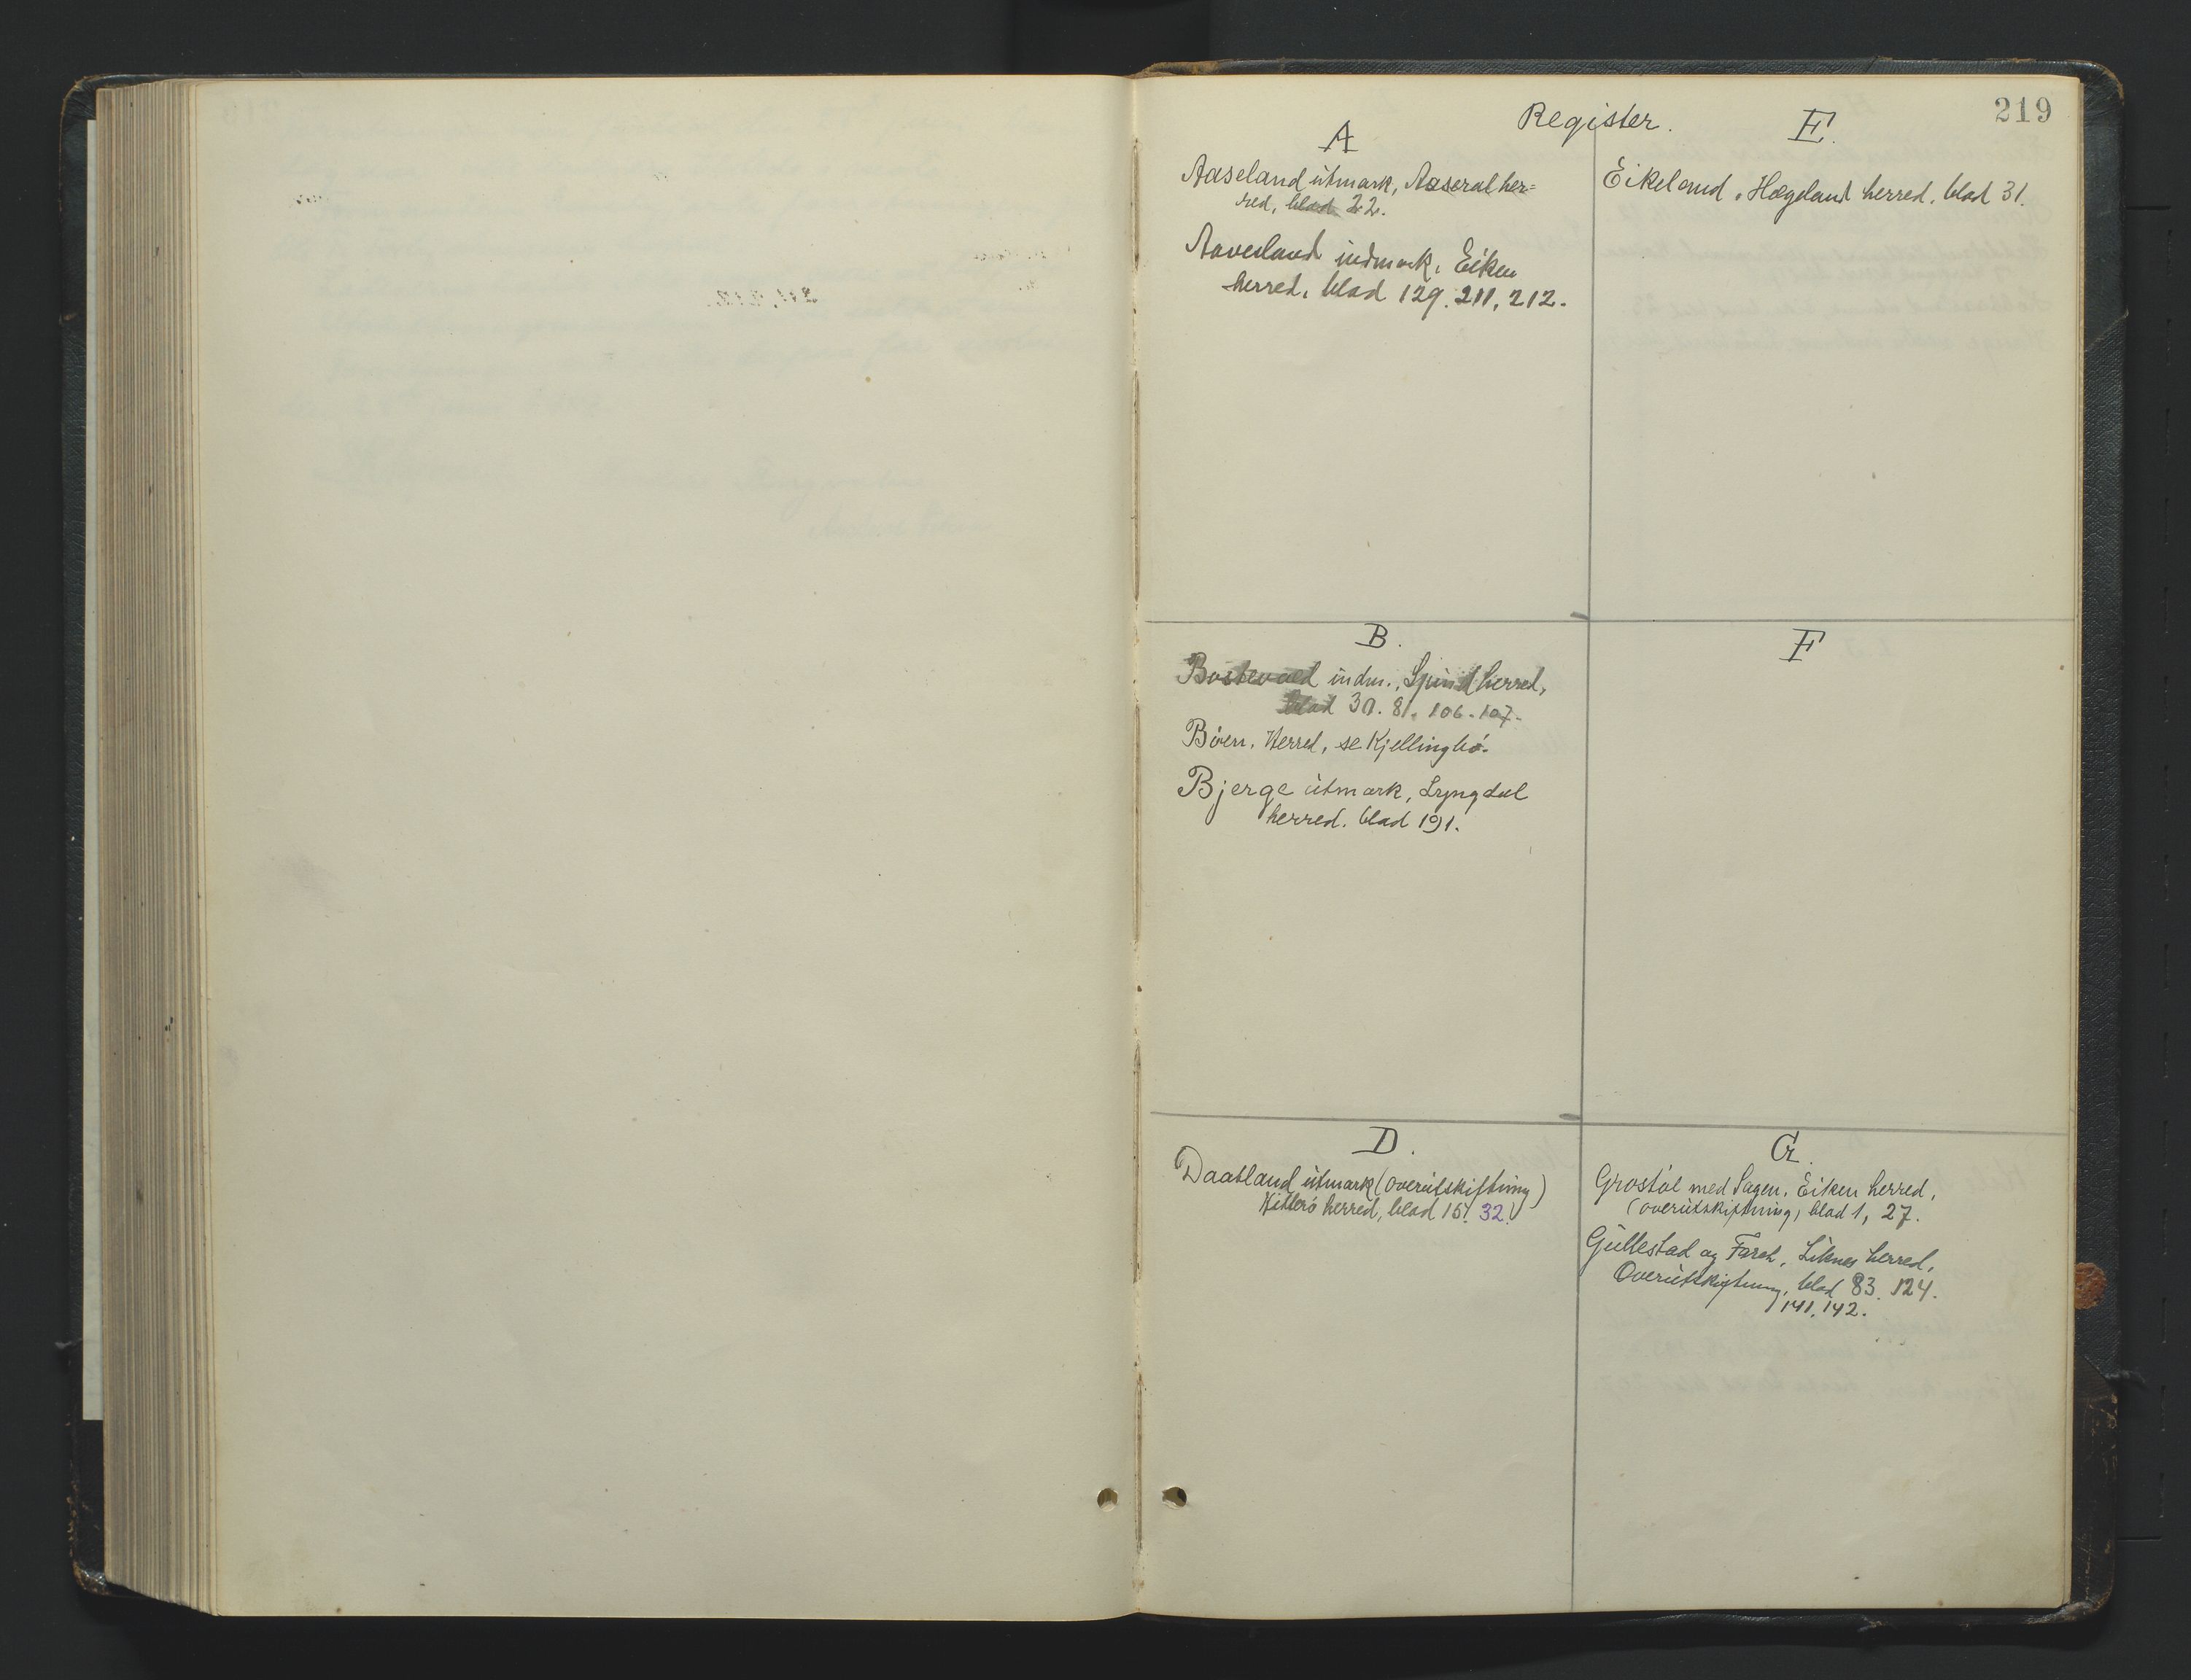 219
Register.
A
Aaseland utmark, Aaseral her=
red, blad 22.
Aavesland indmark, Eiken
herred, blad 129. 211, 212.
E.
Eikeland, Hægeland herred, blad 31.
B.
indm., Spind herred,
blad 30. 81. 106. 107.
Bøen, Herred, se Kjellingbø.
Bjerge utmark, Lyngdal
herred. blad 191.
F
D.
Daatland utmark (overutskiftning)
Hitterø herred, blad 15. 32.
G.
Grostøl med Sagen, Eiken herred,
(overutskiftning) blad 1, 27.
Gullestad og Førel, Liknes herred,
Overutskiftning, blad 83. 124.
141. 142.